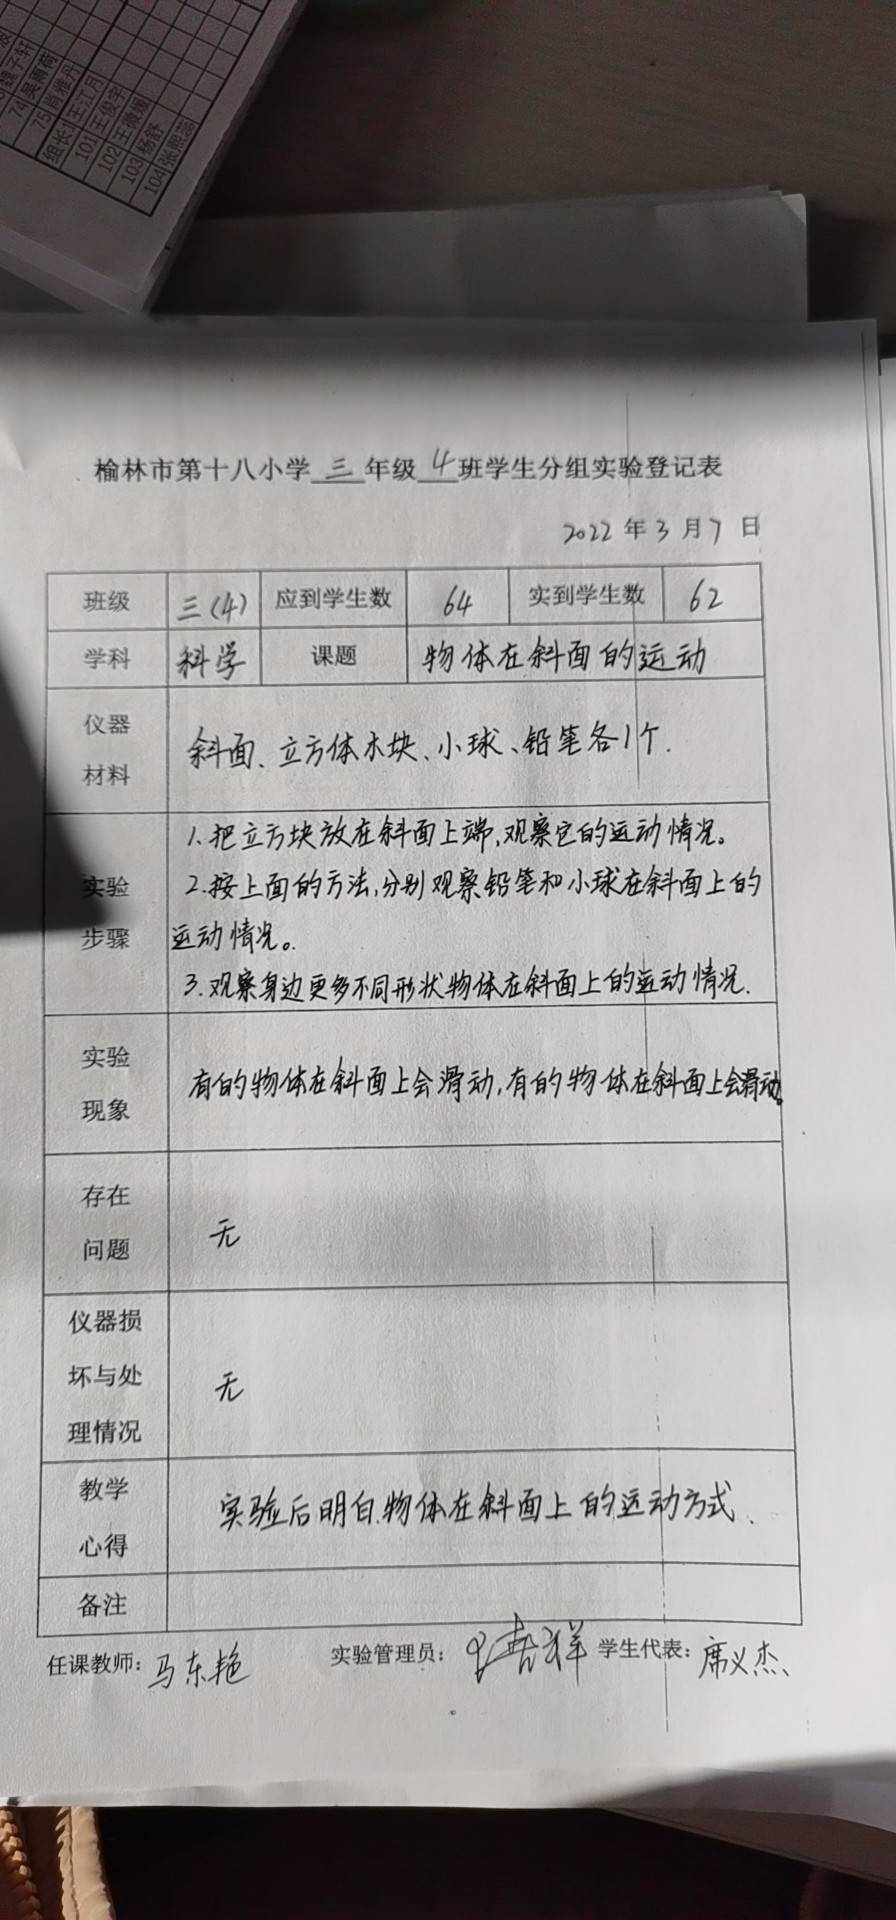 74 吴雨荷
75 肖雅丹
组长 王江月
101 王俊宇
102 王薇媛
103 杨舒
104 张熙蕊
榆林市第十八小学三年级4班学生分组实验登记表
2022年3月7日
班级 三(4) 应到学生数 64 实到学生数 62
学科 科学 课题 物体在斜面的运动
仪器材料 斜面、立方体木块、小球、铅笔各1个.
实验步骤 1.把立方块放在斜面上端,观察它的运动情况。
2.按上面的方法,分别观察铅笔和小球在斜面上的
运动情况。
3.观察身边更多不同形状物体在斜面上的运动情况.
实验现象 有的物体在斜面上会滑动,有的物体在斜面上会滑动。
存在问题 无
仪器损坏与处理情况 无
教学心得 实验后明白物体在斜面上的运动方式.
备注
任课教师:马东艳 实验管理员: 学生代表:席义杰